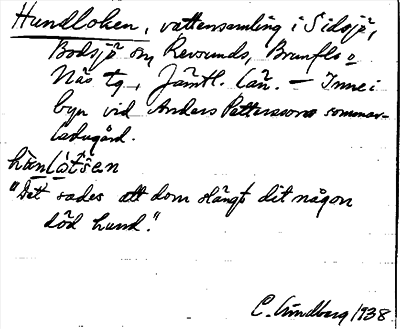 Hundloken, vattensamling i Sidsjö,
Bodsjö sn, Revsunds, Brunflo o
Näs tg, Jämtl. län. — Inne i
byn vid Anders Petterssons sommar-
ladugård.
hùnlø̀tšen
"Det sades att dom slängt dit någon
död hund."
C. Lindberg 1938